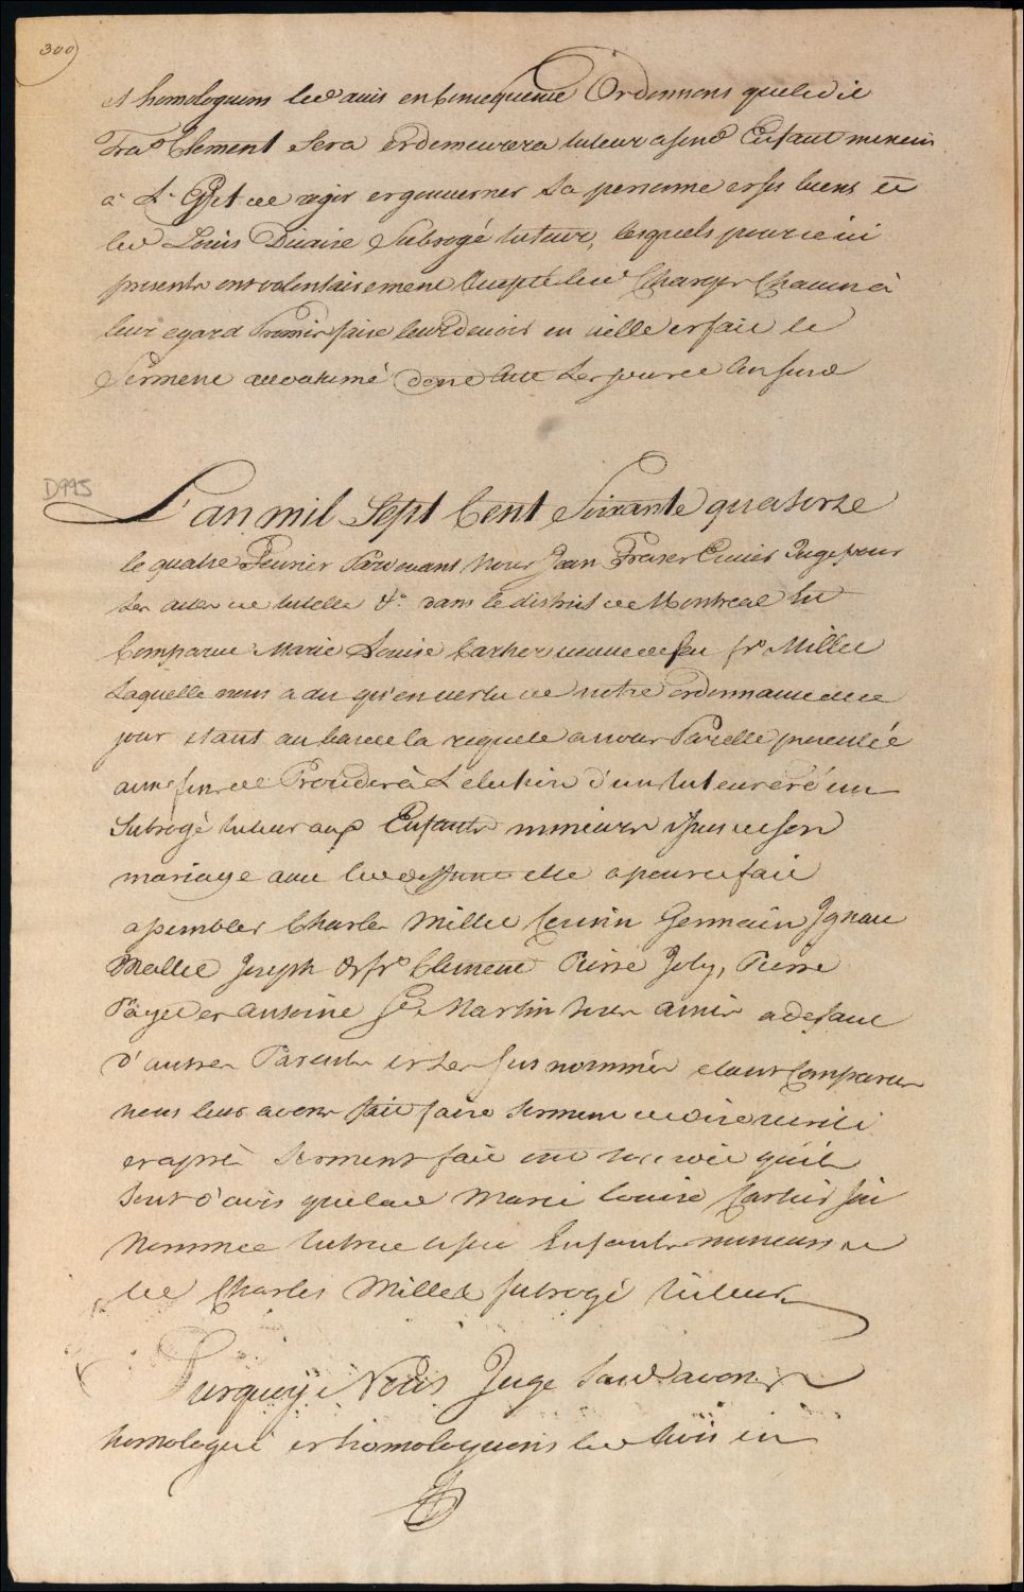 300
et homologuons led avis en Consequence Ordonnons queledit
Fra^s Clement Sera et demeurera tuteur asond Enfant mineur
à L'Effet de regir et gouverner Sa personne et ses biens et
led Louis Subrogé tuteur, lesquels pour ce ici
presents ont volontairement Accepté lesd Charges Chacun à
leur egard Promis faire leur devoir en icelle et fait le
Serment accoutumé dont acte Les jour et an susd
D995
L'an mil Sept Cent Soixante quatorze
le quatre Fevrier Pardevant Nous Jean Fraser Ecuier Juge pour
Les actes de tutelle &^a dans le district de Montreal Est
Comparue Marie Louise Cartier veuve de feu fr^s Millet
Laquelle nous a dit qu'en vertu de notre ordonnance de ce
jour etant au bas de la requete a nous Par elle presentée
aux fins de Proceder à L'election d'un tuteur et d'un
Subrogé tuteur aux Enfants mineurs issus de son
mariage avec led deffunt elle a pour ce fait
assembler Charles Millet Cousin Germain Ignace
Mallet Joseph & fr^s Clement Pierre Joly, Pierre
Payet et Antoine S^t Martin tous amis a defaut
d'autres Parents et Les sus nommés etant Comparus
nous leur avons fait faire Serment de dire verité
et après Serment fait ont dit qu'ils
sont d'avis quelad Marie Louise Cartier soit
Nommée tutrice a ses Enfants mineurs et
led Charles Millet subrogé tuteur
Surquoy Nous Juge Susd avons
homologué et homologuons led avis en